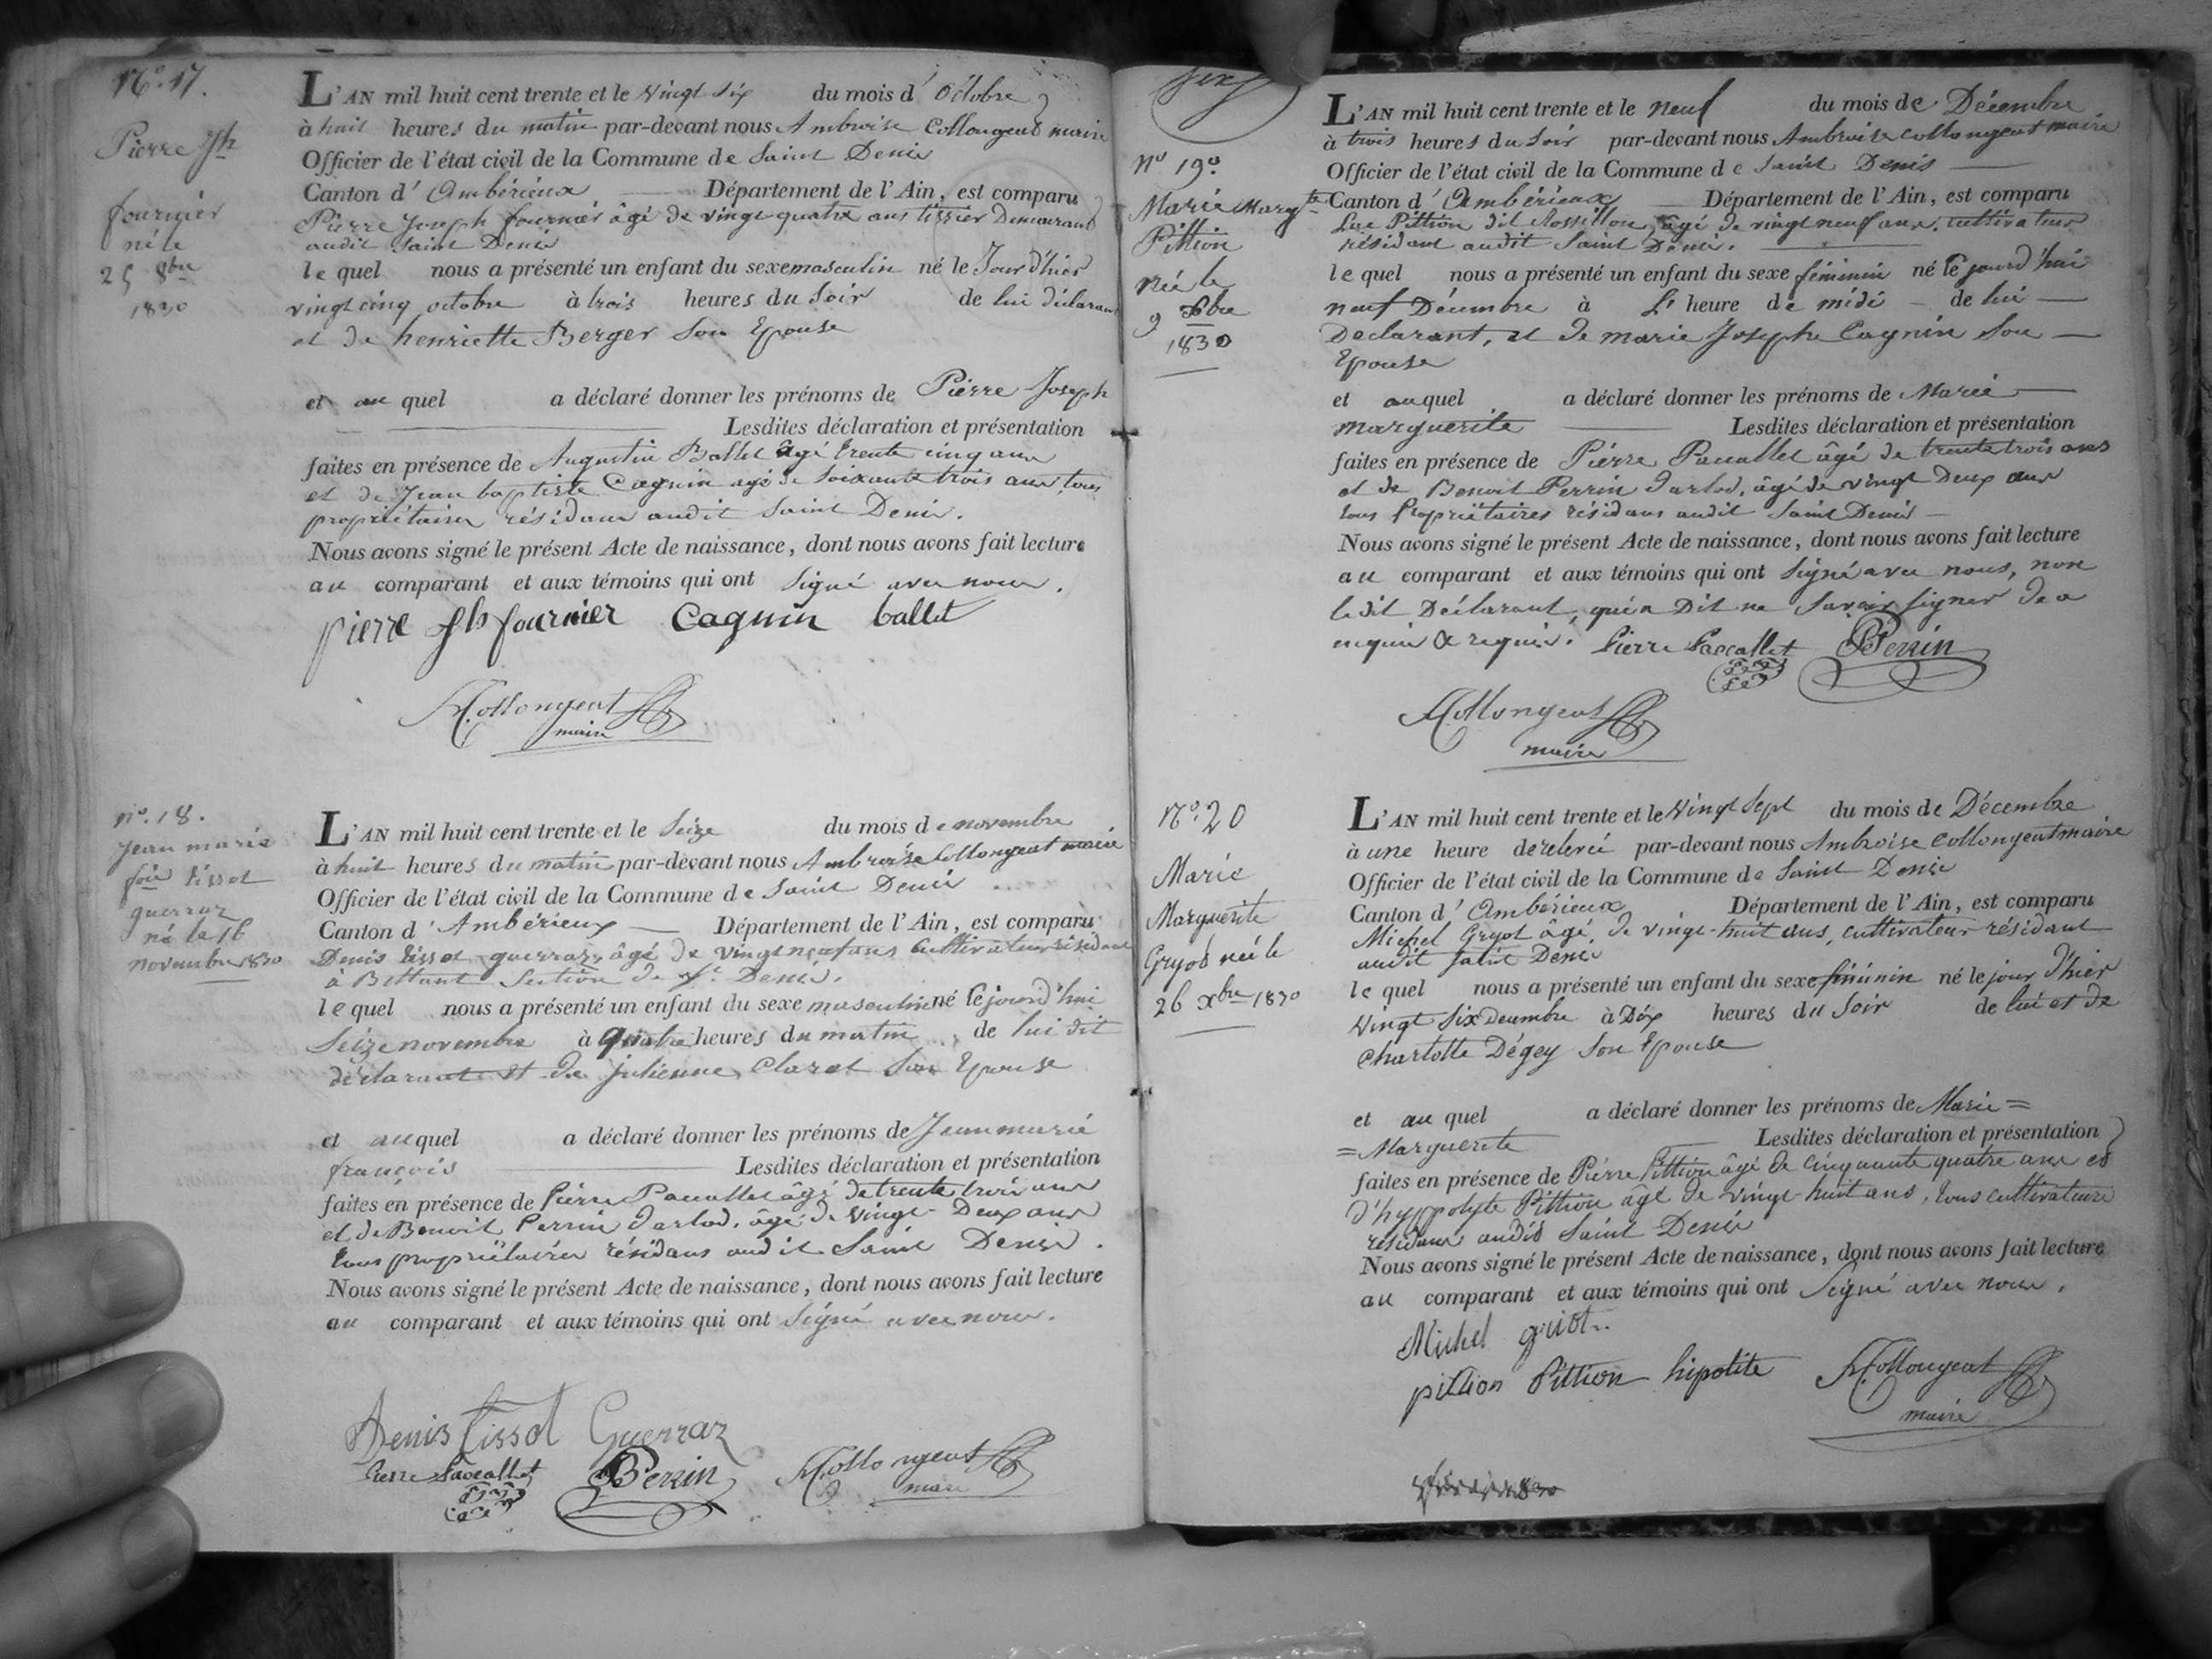 N.º 17.
Pierre Jh
fournier
né le
25 8bre
1830
L'AN mil huit cent trente et le vingt six du mois d'Octobre
à huit heures du matin par-devant nous Ambroise Collongeat maire
Officier de l'état civil de la Commune de Saint Denis
Canton d'Ambérieux Département de l'Ain, est comparu
Pierre Joseph fournier âgé de vingt-quatre ans tissier Demeurant
audit Saint Denis
lequel nous a présenté un enfant du sexe masculin né le Jour d'hier
vingt cinq octobre à trois heures du soir de lui déclarant
et de henriette Berger son Epouse
et au quel a déclaré donner les prénoms de Pierre Joseph
Lesdites déclaration et présentation
faites en présence de Augustin Ballet âgé trente cinq ans
et de Jean baptiste Cagnin agé de soixante trois ans, tous
propriétaires résidans audit Saint Denis.
Nous avons signé le présent Acte de naissance, dont nous avons fait lecture
au comparant et aux témoins qui ont signé avec nous.
pierre Jh fournier Cagnin ballet
A Collongeat
maire
N.º 18.
Jean marie
fois tissot
guerraz
né le 16
novembre 1830
L'AN mil huit cent trente et le Seize du mois de novembre
à huit heures du matin par-devant nous Ambroise Collongeat maire
Officier de l'état civil de la Commune de Saint Denis
Canton d'Ambérieux Département de l'Ain, est comparu
Denis tissot guerraz, âgé de vingt neuf ans Cultivateur résidant
à Bettant Section de St Denis.
lequel nous a présenté un enfant du sexe masculin né le jourd'hui
Seize novembre à quatre heures du matin de lui dit
déclarant et de julienne Claret son Epouse
et auquel a déclaré donner les prénoms de Jean marie
françois Lesdites déclaration et présentation
faites en présence de Pierre Pascallet âgé de trente trois ans
et de Benoit Perrin Jarlod, âgé de vingt Deux ans
tous propriétaires résidans audit Saint Denis.
Nous avons signé le présent Acte de naissance, dont nous avons fait lecture
au comparant et aux témoins qui ont Signé avec nous.
Denis tissot Guerraz
Pierre Pascallet BPerrin A Collongeat
maire
N.º 19.º
Marie Margte
Pittion
née le
9 xbre
1830
L'AN mil huit cent trente et le neuf du mois de Décembre
à trois heures du Soir par-devant nous Ambroise Collongeat maire
Officier de l'état civil de la Commune de Saint Denis
Canton d'Ambérieux Département de l'Ain, est comparu
Luc Pittion dit Rossillon, âgé de vingt neuf ans, cultivateur
résidant audit Saint Denis.
lequel nous a présenté un enfant du sexe féminin né le jourd'hui
neuf Décembre à L' heure de midi de lui
Declarant, et de marie Josephe Cagnin Son
Epouse
et auquel a déclaré donner les prénoms de Marie
marguerite Lesdites déclaration et présentation
faites en présence de Pierre Pascallet âgé de trente trois ans
et de Benoit Perrin Jarlod, âgé de vingt Deux ans
tous Propriétaires résidans audit Saint Denis
Nous avons signé le présent Acte de naissance, dont nous avons fait lecture
au comparant et aux témoins qui ont Signé avec nous, non
ledit Déclarant, qui a Dit ne Savoir signer de ce
enquis & requis. Pierre Pascallet BPerrin
A Collongeat
maire
N.º 20
Marie
Marguerite
Gryot née le
26 xbre 1830
L'AN mil huit cent trente et le Vingt Sept du mois de Décembre
à une heure derelevé par-devant nous Ambroise Collongeat maire
Officier de l'état civil de la Commune de Saint Denis
Canton d'Ambérieux Département de l'Ain, est comparu
Michel Gryot âgé de vingt-huit ans, cultivateur résidant
audit Saint Denis
lequel nous a présenté un enfant du sexe féminin né le jour d'hier
Vingt Six Decembre à Dix heures du Soir de lui et de
Charlotte Dégey Son Epouse
et au quel a déclaré donner les prénoms de Marie =
= Marguerite Lesdites déclaration et présentation
faites en présence de Pierre Pittion âgé de cinquante quatre ans et
d'hyppolyte Pittion âgé de vingt-huit ans, tous cultivateurs
résidans audit Saint Denis
Nous avons signé le présent Acte de naissance, dont nous avons fait lecture
au comparant et aux témoins qui ont Signé avec nous.
Michel guiot
pittion Pittion hipolite A Collongeat
maire